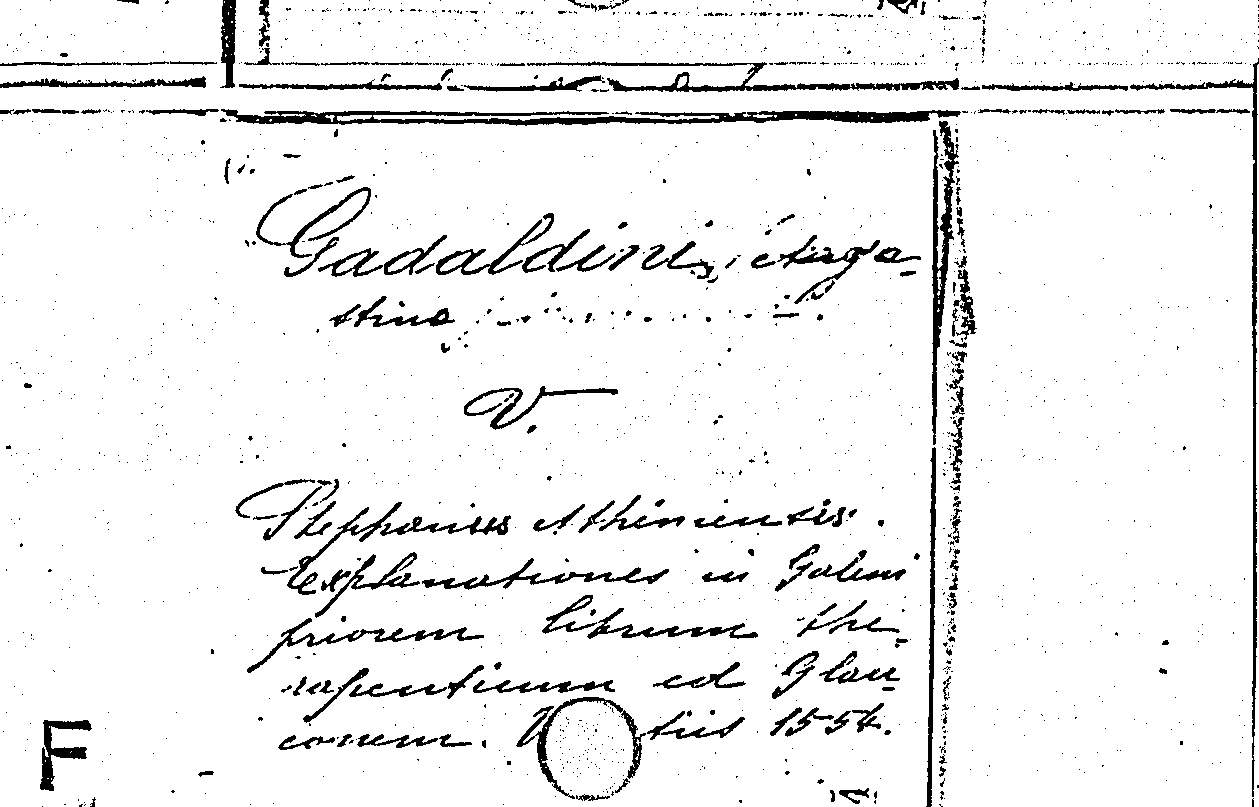 Gadaldini, Auga-
stino
V.
Stephanus Atheniensis.
Explanationes in Galeni
priorem librum the-
rapeuticum ad Glau-
conem. V tiis 1554.
F